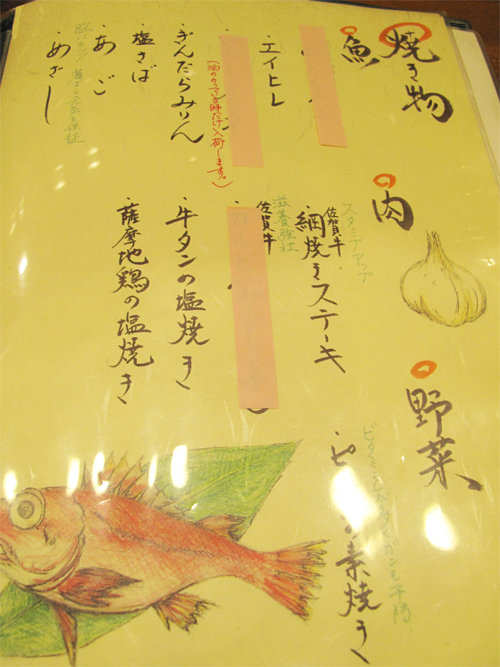 焼き物
魚
・エイヒレ
(油ののってる時だけ入荷します。)
・ぎんだらみりん
・塩さば
・あご
・めざし
肉
スタミナアップ
佐賀牛
・網焼きステーキ
滋養強壮
佐賀牛
・牛タンの塩焼き
・薩摩地鶏の塩焼き
野菜
素焼き